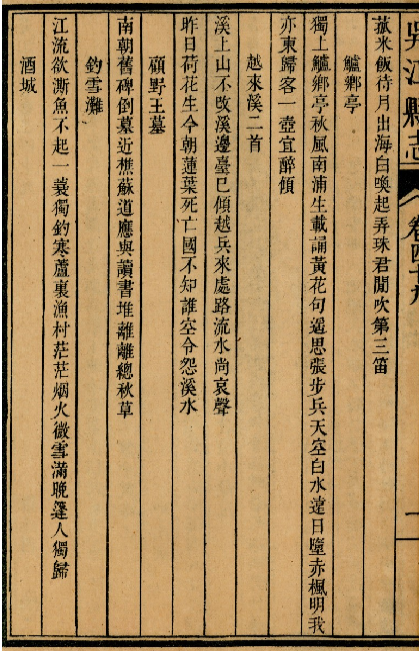 吳江縣志
卷四九
一
菰米飯待月出海白喚起弄珠君閒吹第三笛
鱸鄉亭
獨上鱸鄉亭秋風南浦生載誦黃花句遥思張步兵天空白水遠日墮赤楓明我
亦東歸客一壺宜醉傾
越來溪二首
溪上山不改溪邊臺已傾越兵來處路流水尚哀聲
昨日荷花生今朝蓮葉死亡國不知誰空令怨溪水
顧野王墓
南朝舊碑倒墓近樵蘇道應與讀書堆離離總秋草
釣雪灘
江流欲澌魚不起一蓑獨釣寒蘆裏漁村茫茫烟火微雪滿晚篷人獨歸
酒城